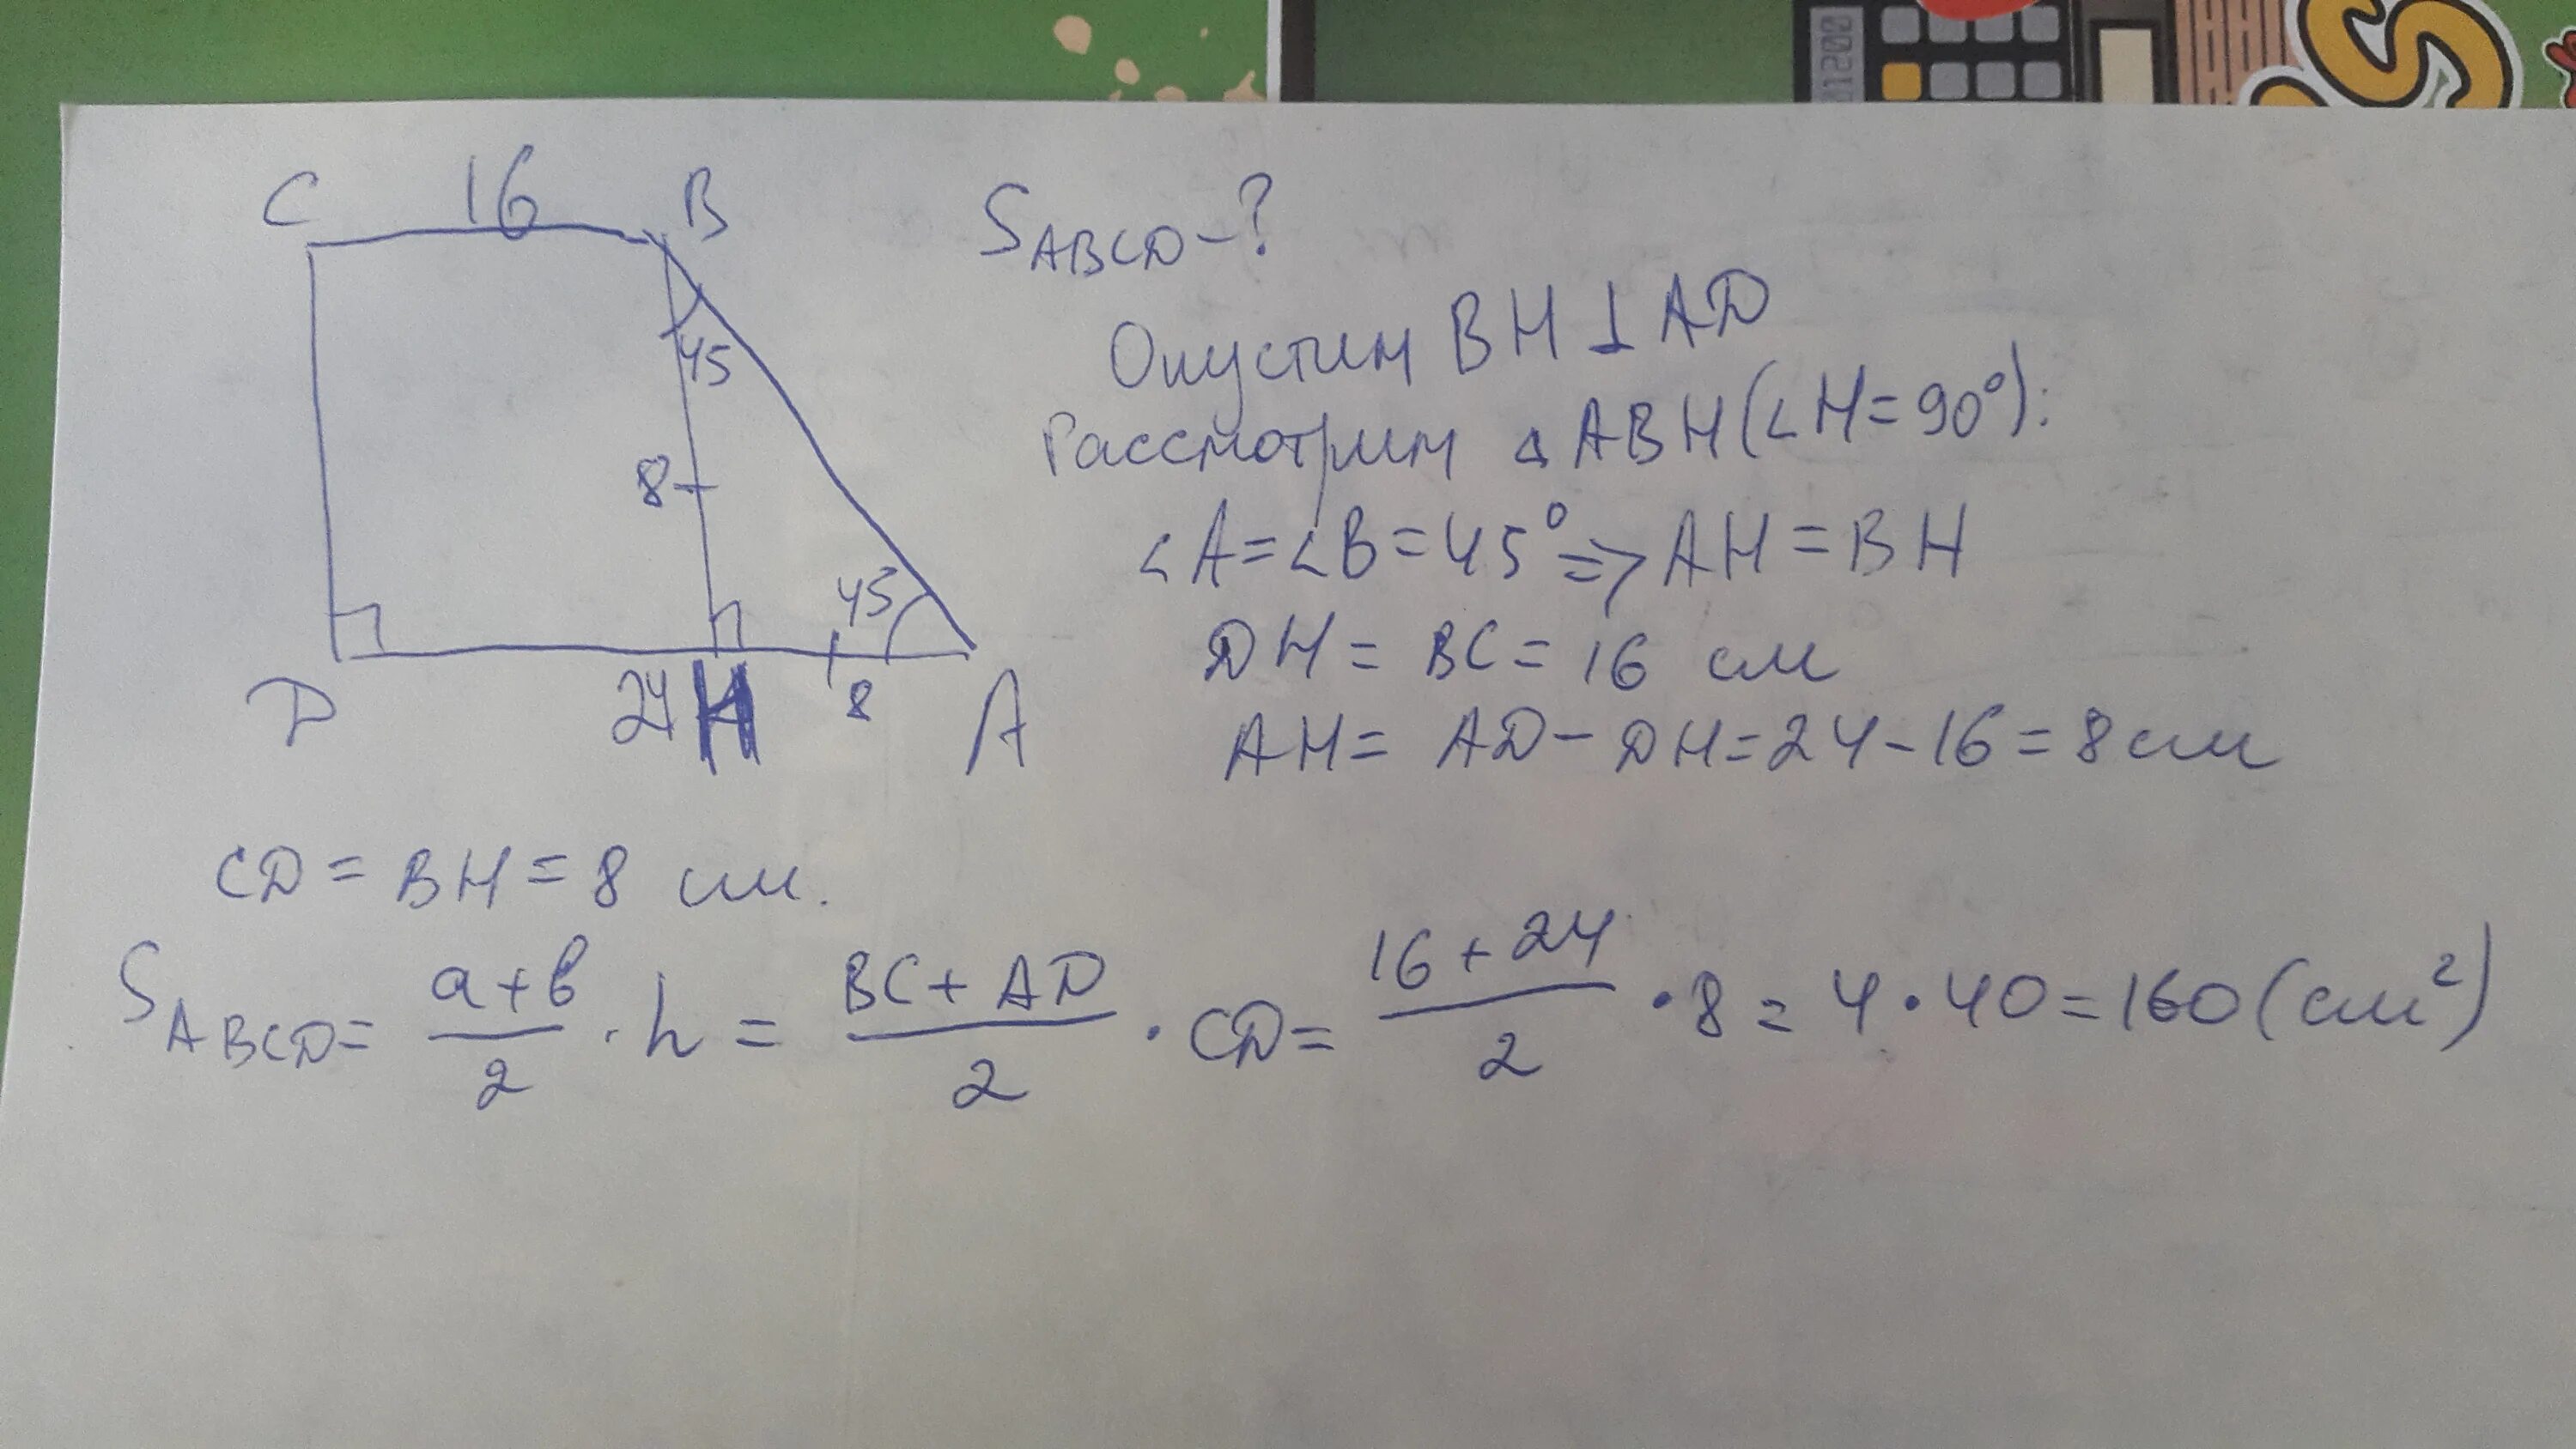 C 16 B
45
8
45
D 24 H 8 A
S ABCD - ?
Опустим BH ⊥ AD
Рассмотрим △ ABH (∠H = 90°):
∠A = ∠B = 45° => AH = BH
DH = BC = 16 см
AH = AD - DH = 24 - 16 = 8 см
CD = BH = 8 см.
S ABCD = (a+b)/2 · h = (BC + AD)/2 · CD = (16 + 24)/2 · 8 = 4 · 40 = 160 (см²)
01200
S